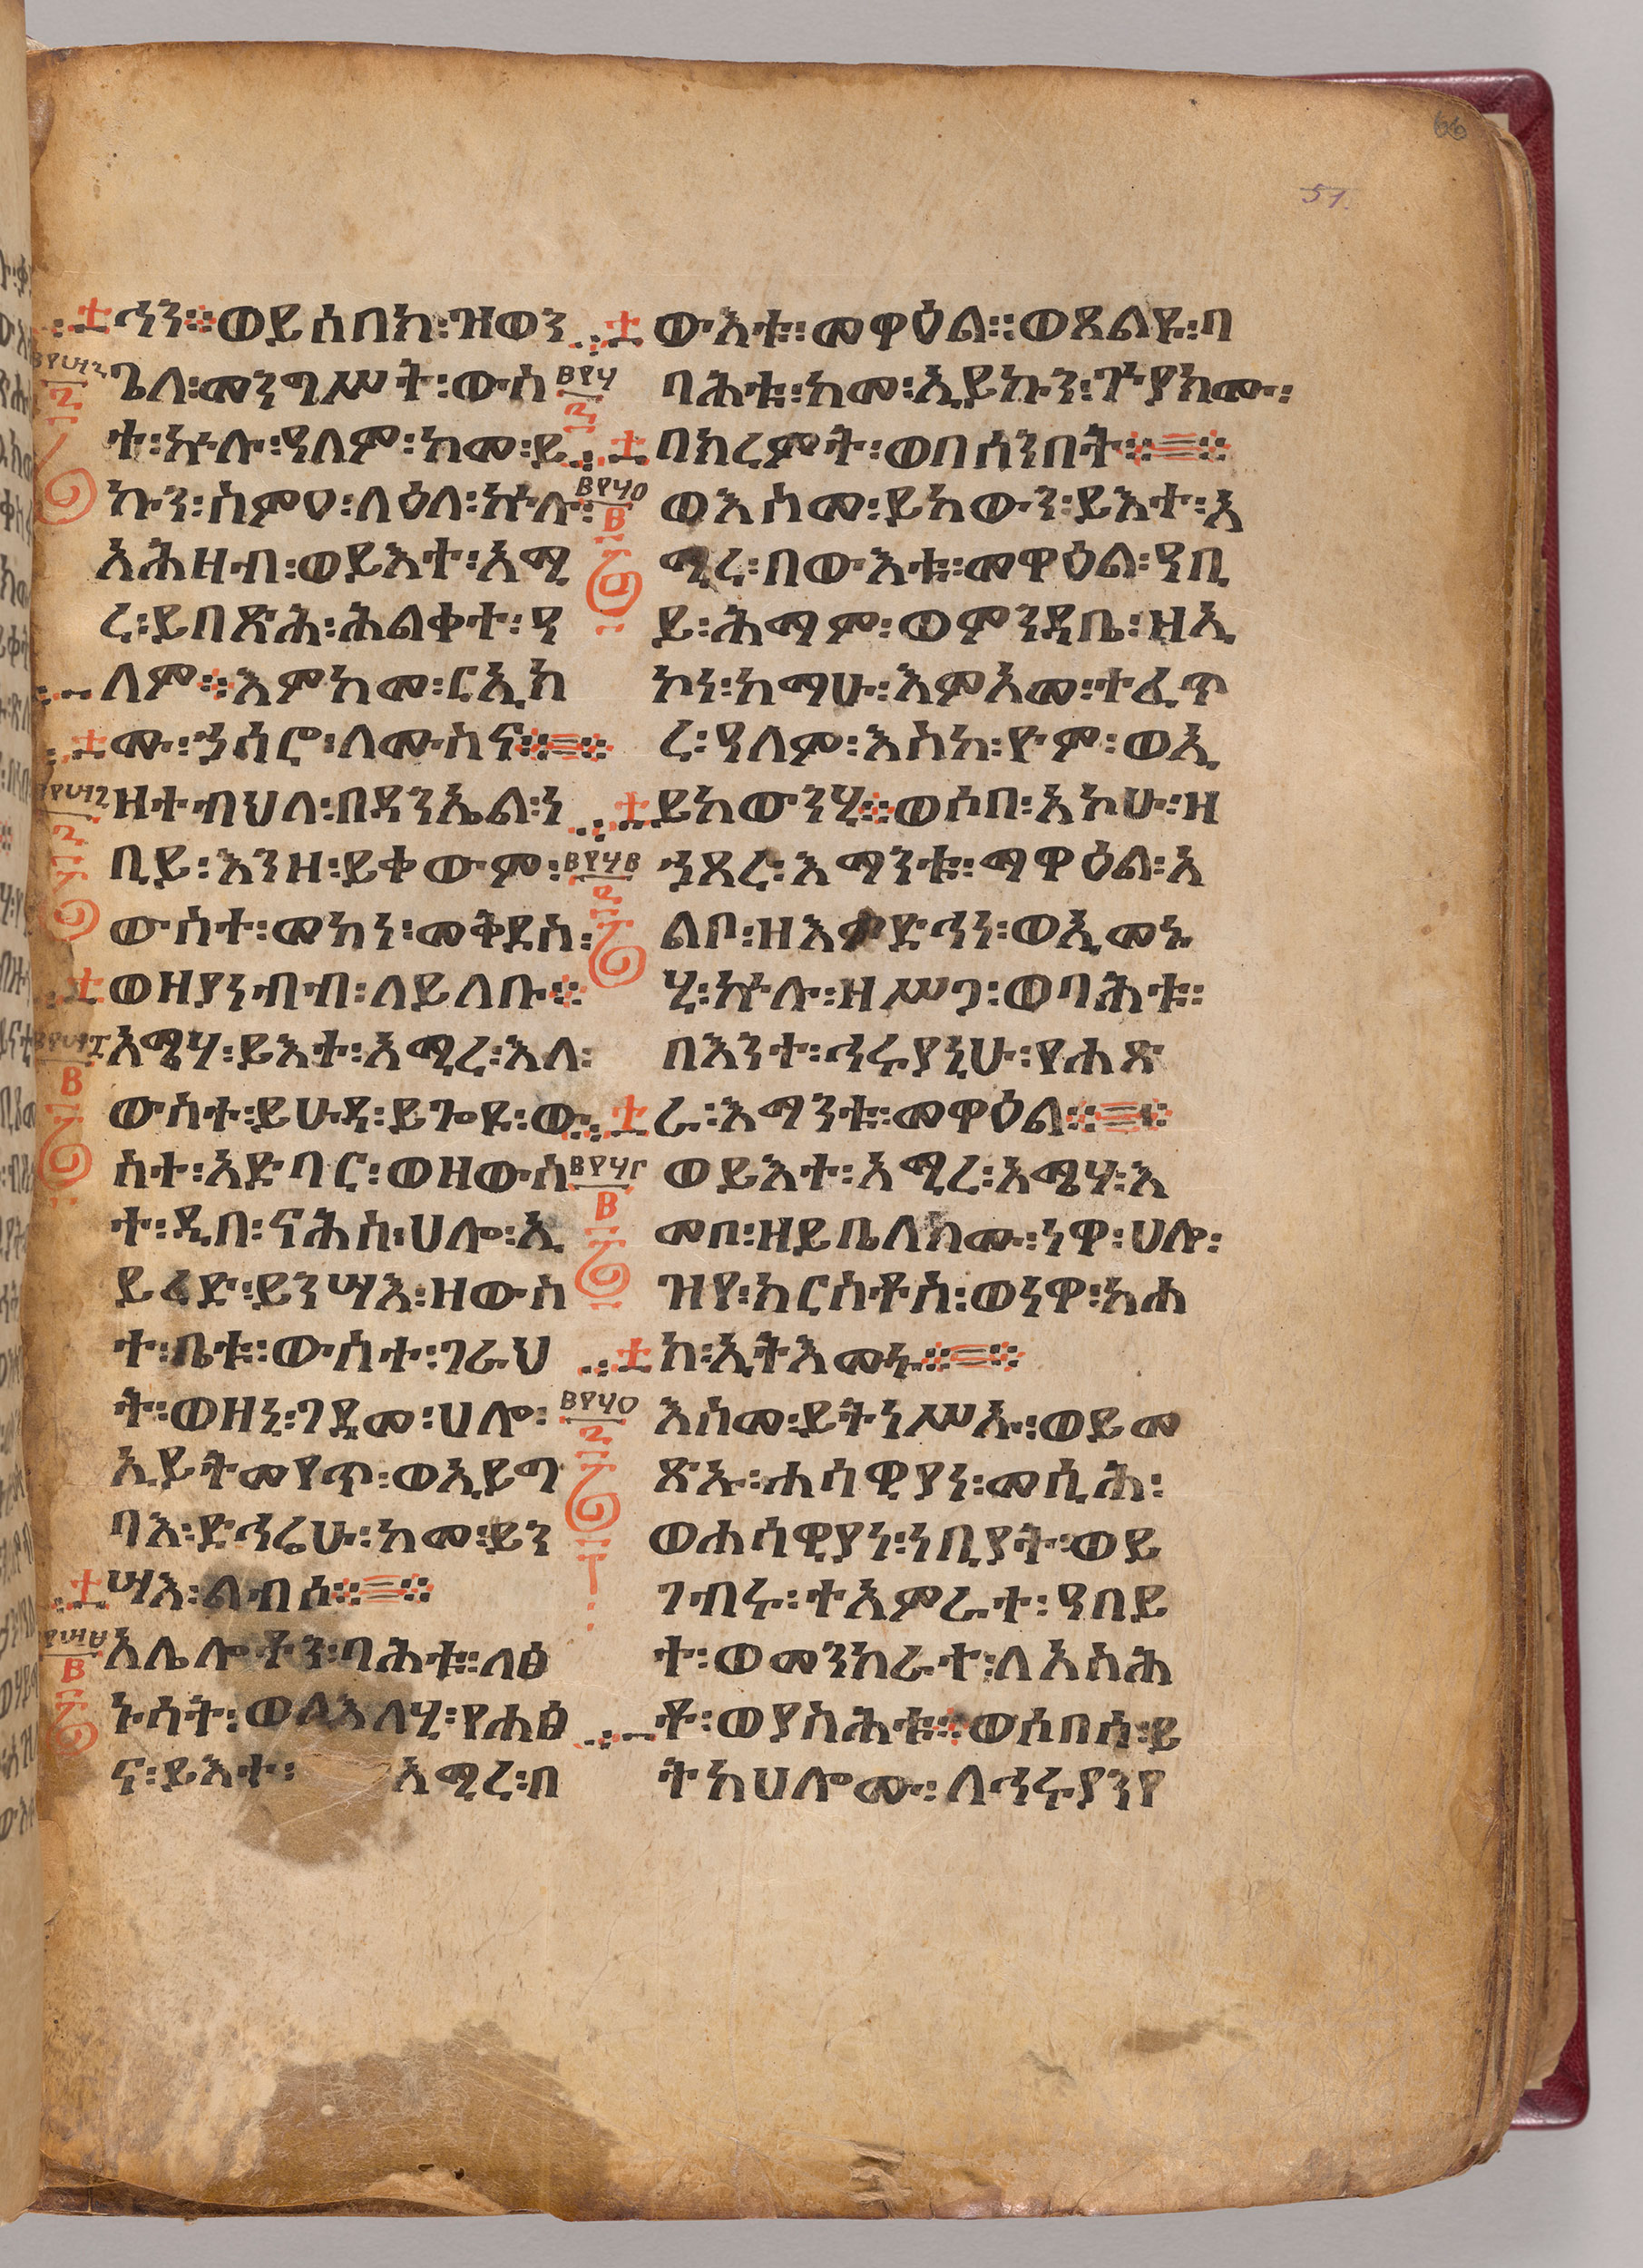 66
51.
ኅን፨ወይሰበክ፡ዝወን
ጌለ፡መንግሥት፡ውስ
ተ፡ኵሉ፡ዓለም፡ከመ፡ይ
ኩን፡ስምዐ፡ለዕለ፡ኵሉ፡
አሕዘብ፡ወይእተ፡አሚ
ረ፡ይበጽሕ፡ሕልቀተ፡ዓ
ለም፨እምከመ፡ርኢክ
ሙ፡ኃሳሮ፡ለሙስና፨
ዘተብህለ፡በዳንኤል፡ነ
ቢይ፡እንዘ፡ይቀውም፡
ውስተ፡መከነ፡መቅደስ፡
ወዘያነብብ፡ለይለቡ፨
አሜሃ፡ይእተ፡አሚረ፡እለ፡
ውስተ፡ይሁዳ፡ይጐዩ፡ው
ስተ፡አድባር፡ወዘውስ
ተ፡ዲበ፡ናሕስ፡ሀሎ፡ኢ
ይረድ፡ይንሣእ፡ዘውስ
ተ፡ቤቱ፡ውስተ፡ገራህ
ት፡ወዘኒ፡ገዳመ፡ሀሎ፡
ኢይትመየጥ፡ወኢይግ
ባእ፡ድኅሬሁ፡ከመ፡ይን
ሣእ፡ልብሰ፨
አሌሎቶን፡ባሕቱ፡ለፅ
ኑሳት፡ወለእለሂ፡የሐፅ
ና፡ይእተ፡አሚረ፡በ
ውእቱ፡መዋዕል፡፡ወጸልዩ፡ባ
ባሕቱ፡ከመ፡ኢይኩን፡ጕያክሙ፡
በክረምት፡ወበሰንበት፨
ወእስመ፡ይከውን፡ይእተ፡አ
ሚረ፡በውእቱ፡መዋዕል፡ዓቢ
ይ፡ሕማም፡ወምንዳቤ፡ዘኢ
ኮነ፡ከማሁ፡እምአመ፡ተፈጥ
ረ፡ዓለም፡እስከ፡ዮም፡ወኢ
ይከውንሂ፨ወሶበ፡አኮሁ፡ዘ
ኃጸረ፡እማንቱ፡ማዋዕል፡እ
ልቦ፡ዘእምድኅነ፡ወኢመኑ
ሂ፡ኵሉ፡ዘሥጋ፡ወባሕቱ፡
በእንተ፡ኅሩያኒሁ፡የሐጽ
ራ፡እማንቱ፡መዋዕል፨
ወይእተ፡አሚረ፡አሜሃ፡እ
መቦ፡ዘይቤለክሙ፡ነዋ፡ሀሎ፡
ዝየ፡ክርስቶስ፡ወነዋ፡ከሐ
ከ፡ኢትእመኑ፨
እስመ፡ይትነሥኡ፡ወይመ
ጽኡ፡ሐሳዊያነ፡መሲሕ፡
ወሐሳዊያነ፡ነቢያት፡ወይ
ገብሩ፡ተአምራተ፡ዓበይ
ተ፡ወመንክራተ፡ለአስሕ
ቶ፡ወያስሕቱ፨ወሰበሰ፡ይ
ትከሀሎሙ፡ለኅሩያንየ